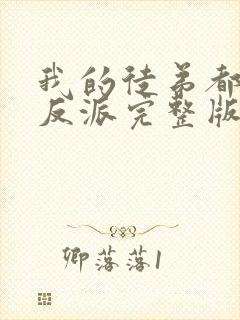 我的徒弟都
反派完整版
卿落落1